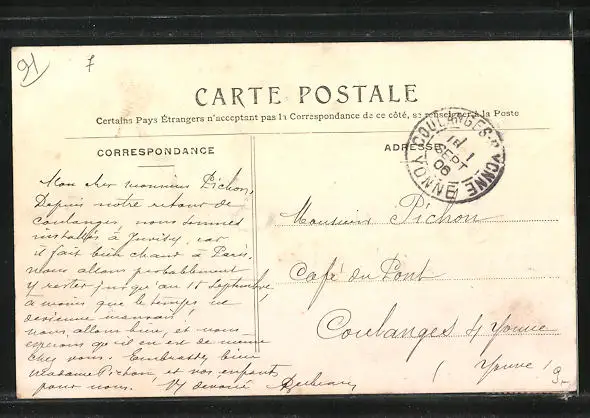 91 7
CARTE POSTALE
Certains Pays Étrangers n'acceptent pas la Correspondance de ce côté, se renseigner à la Poste
CORRESPONDANCE
ADRESSE
COULANGES-S-YONNE
1 SEPT
06
YONNE
Mon cher monsieur Pichon,
Depuis notre retour de
Coulanges, nous sommes
installés à Juvisy, car
il fait bien chaud à Paris.
Nous allons probablement
y rester jusqu'au 15 Septembre
à moins que le temps ne
devienne mauvais!
Nous allons bien, et nous
espérons qu'il en est de même
chez vous. Embrassez bien
Madame Pichon, et vos enfants
pour nous. Vt dévoué
Monsieur Pichon
Café du Pont
Coulanges s/ Yonne
(Yonne)
9.-